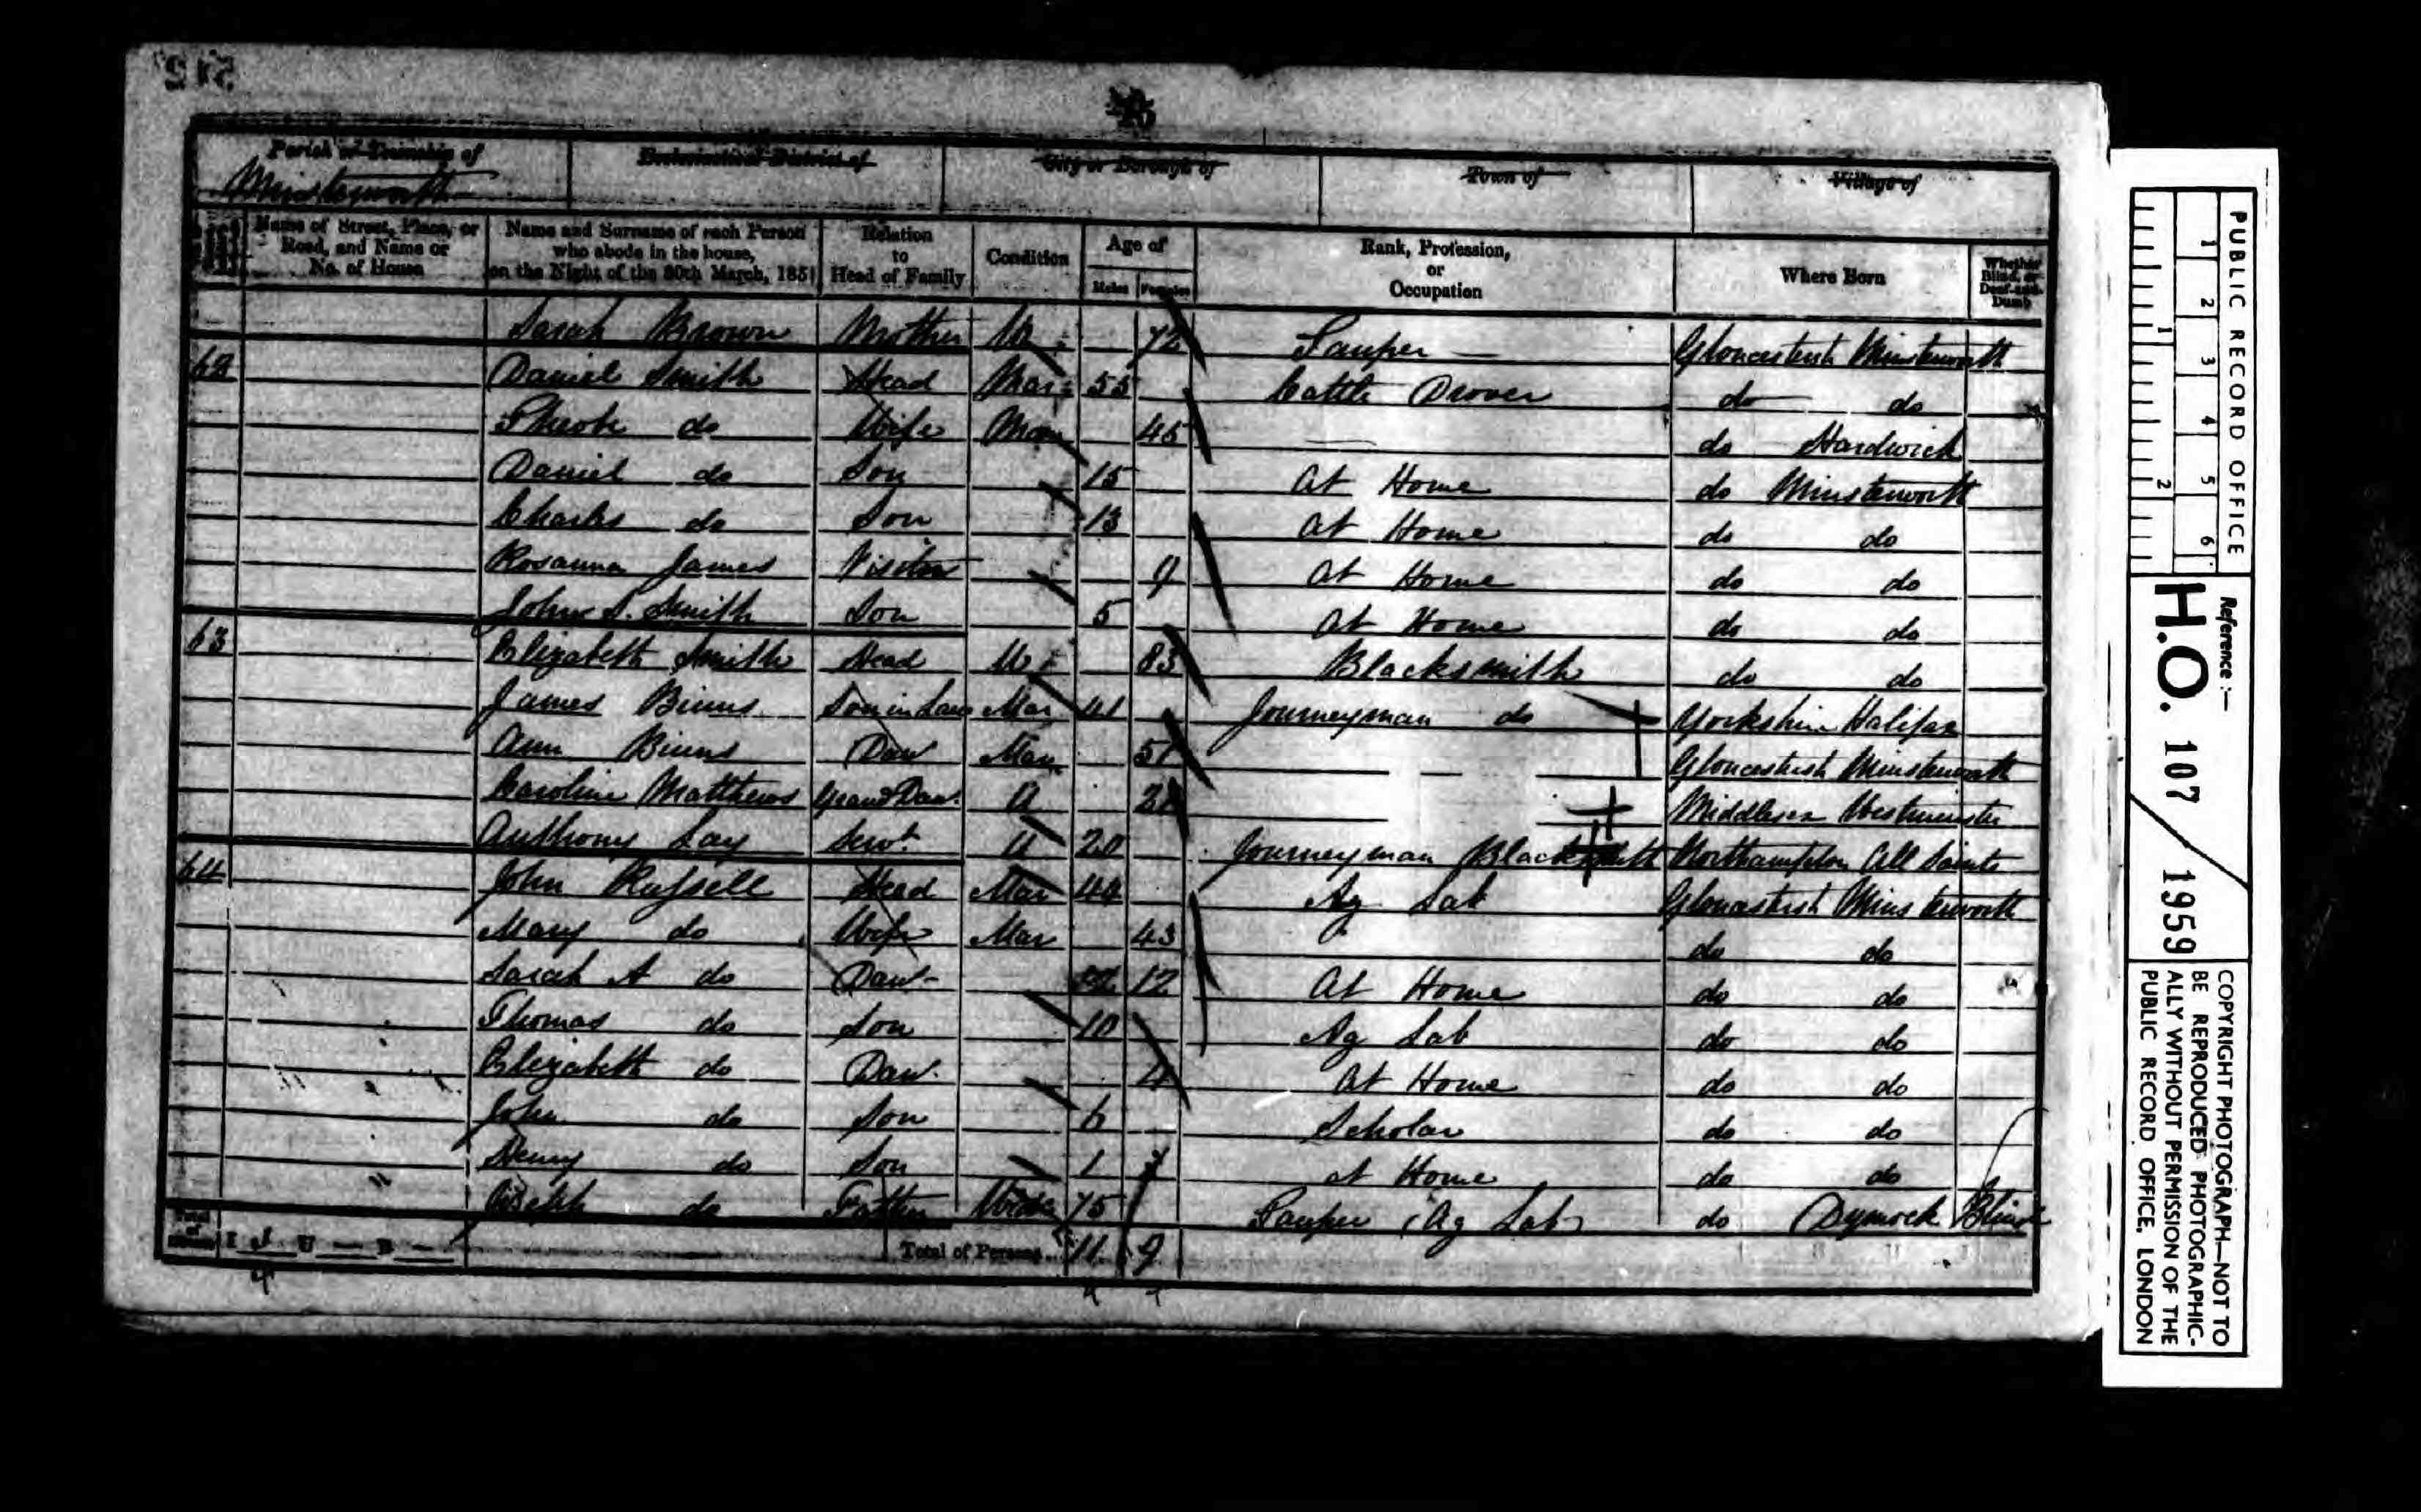 Parish or Township of
Ecclesiastical District of
City or Borough of
Town of
Village of
Minsterworth
Name of Street, Place, or Road, and Name or No. of House
Name and Surname of each Person who abode in the house, on the Night of the 30th March, 1851
Relation to Head of Family
Condition
Age of
Males
Females
Rank, Profession, or Occupation
Where Born
Whether Blind, or Deaf-and-Dumb
Sarah Brown Mother W 72 Pauper — Gloucestersh Minsterworth
62 Daniel Smith Head Mar 55 Cattle Drover do do
Pheobe do Wife Mar 45 — do Hardwick
Daniel do Son 15 At Home do Minsterworth
Charles do Son 13 At Home do do
Rosanna James Visitor 9 At Home do do
John S. Smith Son 5 At Home do do
63 Elizabeth Smith Head W 83 Blacksmith do do
James Binns Son in Law Mar 41 Journeyman do Yorkshire Halifax
Ann Binns Daur Mar 51 — Gloucestersh Minsterworth
Caroline Matthews Grand Daur U Middlesex Westminster
Anthony Lay Servt U 20 Journeyman Blacksmith Northampton All Saints
64 John Russell Head Mar 44 Ag Lab Gloucestersh Minsterworth
Mary do Wife Mar 43 do do
Sarah A do Daur 12 At Home do do
Thomas do Son 10 Ag Lab do do
Elizabeth do Daur 4 At Home do do
John do Son 6 Scholar do do
Henry do Son 1 at Home do do
Joseph do Father Widr 75 Pauper (Ag Lab) do Dymock Blind
Total of Persons... 11 9
PUBLIC RECORD OFFICE
1 2 3 4 5 6
1 2
Reference :-
H.O. 107 / 1959
COPYRIGHT PHOTOGRAPH—NOT TO
BE REPRODUCED PHOTOGRAPHIC-
ALLY WITHOUT PERMISSION OF THE
PUBLIC RECORD OFFICE, LONDON